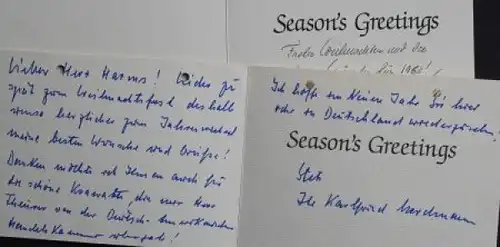 Season's Greetings
Frohe Weihnachten und die
für 1968!
Lieber Herr Harms! Leider zu
spät zum Weihnachtsfest deshalb
umso herzlicher zum Jahreswechsel
meine besten Wünsche und Grüße!
Danken möchte ich Ihnen auch für
die schöne Krawatte, die mir Herr
von der Deutsch-Amerikanischen
Handelskammer übergab!
Ich hoffe im Neuen Jahr Sie hier
oder in Deutschland wiederzusehen!
Season's Greetings
Stets
Ihr Karlfried